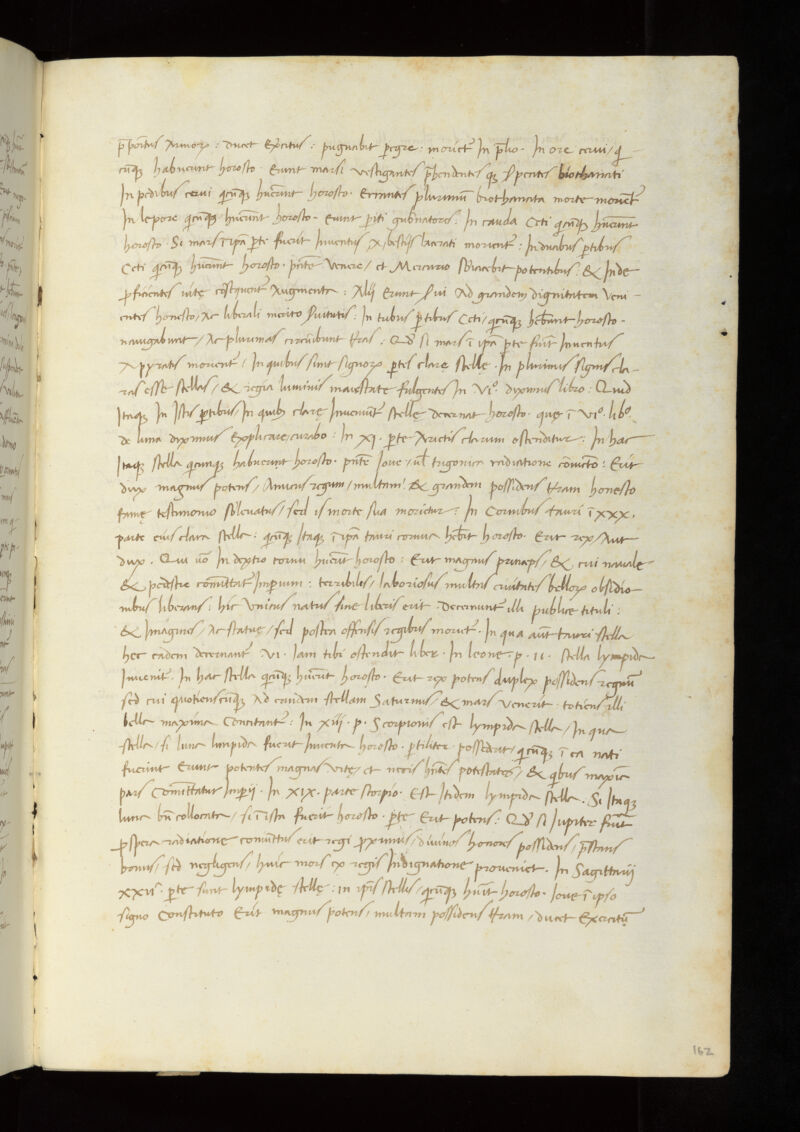 pͣportus Armoꝝ : ducet Exercitus : pugnabit peregre · moriet᷑ In plio · In ore cerui / qͥ
cūqꝫ habuerint horosco · Erunt marsi vestigantes prehendentes qꝫ serpentes biothanati
In pedibus cerui qcunqꝫ huerint horosco · Errantes plurimum biothanata morte morient᷑
In lepore qcunqꝫ huerint horosco · Erunt periti gubnatores : In cauda Ceti qcunqꝫ huerint
horosco · Si mars ī ipa parte fuerit Inuentus / A bestijs lacerati morient᷑ : In duabus ptibus
Ceti qcunqꝫ huerint horosco · pnte Venere / et Mercurio potentibus : & Inde
pficientes uite cōsequent᷑ Augmenta : Alij Erunt sui Ad grandem dignitatem Veni -
entes honesto / Ac liberali merito : In tubus ptibus Ceti / qcunqꝫ hēbunt horosco ·
nauigabunt / Ac plurimas circuibunt tras : Qd si mars ī ipa pte fuit Inuentus
A pyratis morient᷑ / In quibus sunt signoꝝ ptes clare stelle · In plurimis signis cla
ras esse stellas / & regia luminis maiestate fulgentes In VIº · diximus libro : Quid
Itaqꝫ In Istis ptibus / In quibꝫ clare Inueniunt᷑ stelle decernat horosco · que ī VIº · libº ·
de luna diximus Explicare curabo : In XI · parte Arietis clarum ostenditur : In hac
Itaqꝫ stella qcunqꝫ habuerint horosco · pnte Ioue / ul trigonica radiatione cōiuncto : Erit
dux magnus potens / Amicus regum / multam & grandem possidens tram honesto
fame testimonio subleuatus / sed is morte sua morietur : In Cornibus tauri ī XXX ·
parte eius clara stella : qcunqꝫ Itaqꝫ ī ipa tauri cornua hēbit horosco · Erit rex / Aut
dux · Qui uo In dextro cornu huerit horosco : Erit magnus princeps / & cui nauale
& pedestre comittat᷑ Imperium : terribilis / laboriosus multas ciuitates belloꝝ obsidio
nibus liberans : hic Vnicus natus sine liberis erit decernunt᷑ illi publice tituli :
& Imagines / Ac statue / sed postea offensis regibus moriet᷑ · In qua aut tauri stella
hec eadem decernant᷑ VI · Iam tibi ostendit liber · In leone · p · II · stella lympida
Inuenit᷑ · In hac stella qcunqꝫ huerit horosco · Erit rex potens duplex possidens regnū
sed cui quotienscūqꝫ Ad eandem stellam Saturnus / & mars Venerit · totiens illi
bella maxima Concitant᷑ : In XIIJ · p · Scorpionis est lympida stella / In qua
stella / si luna limpida fuerit Inuenta horosco · ptiliter possederit / qcunqꝫ ī ea nati
fuerint Erunt potentes magnas Vite / et necis hntes potestates / & qbus maxīa
pars Comittatur Imperij · In XIX · parte scorpio · Est Itidem lympida stella · Si Itaqꝫ
luna bn collocata / si ī ista fuerit horosco · parte Erit potens : Qd si Iupiter fuit
pspera radiatione coniunctus erit regi proximus / diuinos honores possidens / prestans
bonus / sed negligens / huic mors ex regis Indignatione proueniet · In Sagittarij
XXVIª · parte sunt lympide stelle : in ipis stellis / qcunqꝫ huit horosco · Ioue ī ipso
signo Constituto Erit magnus potens / multam possidens tram / ducet Exercitū
162